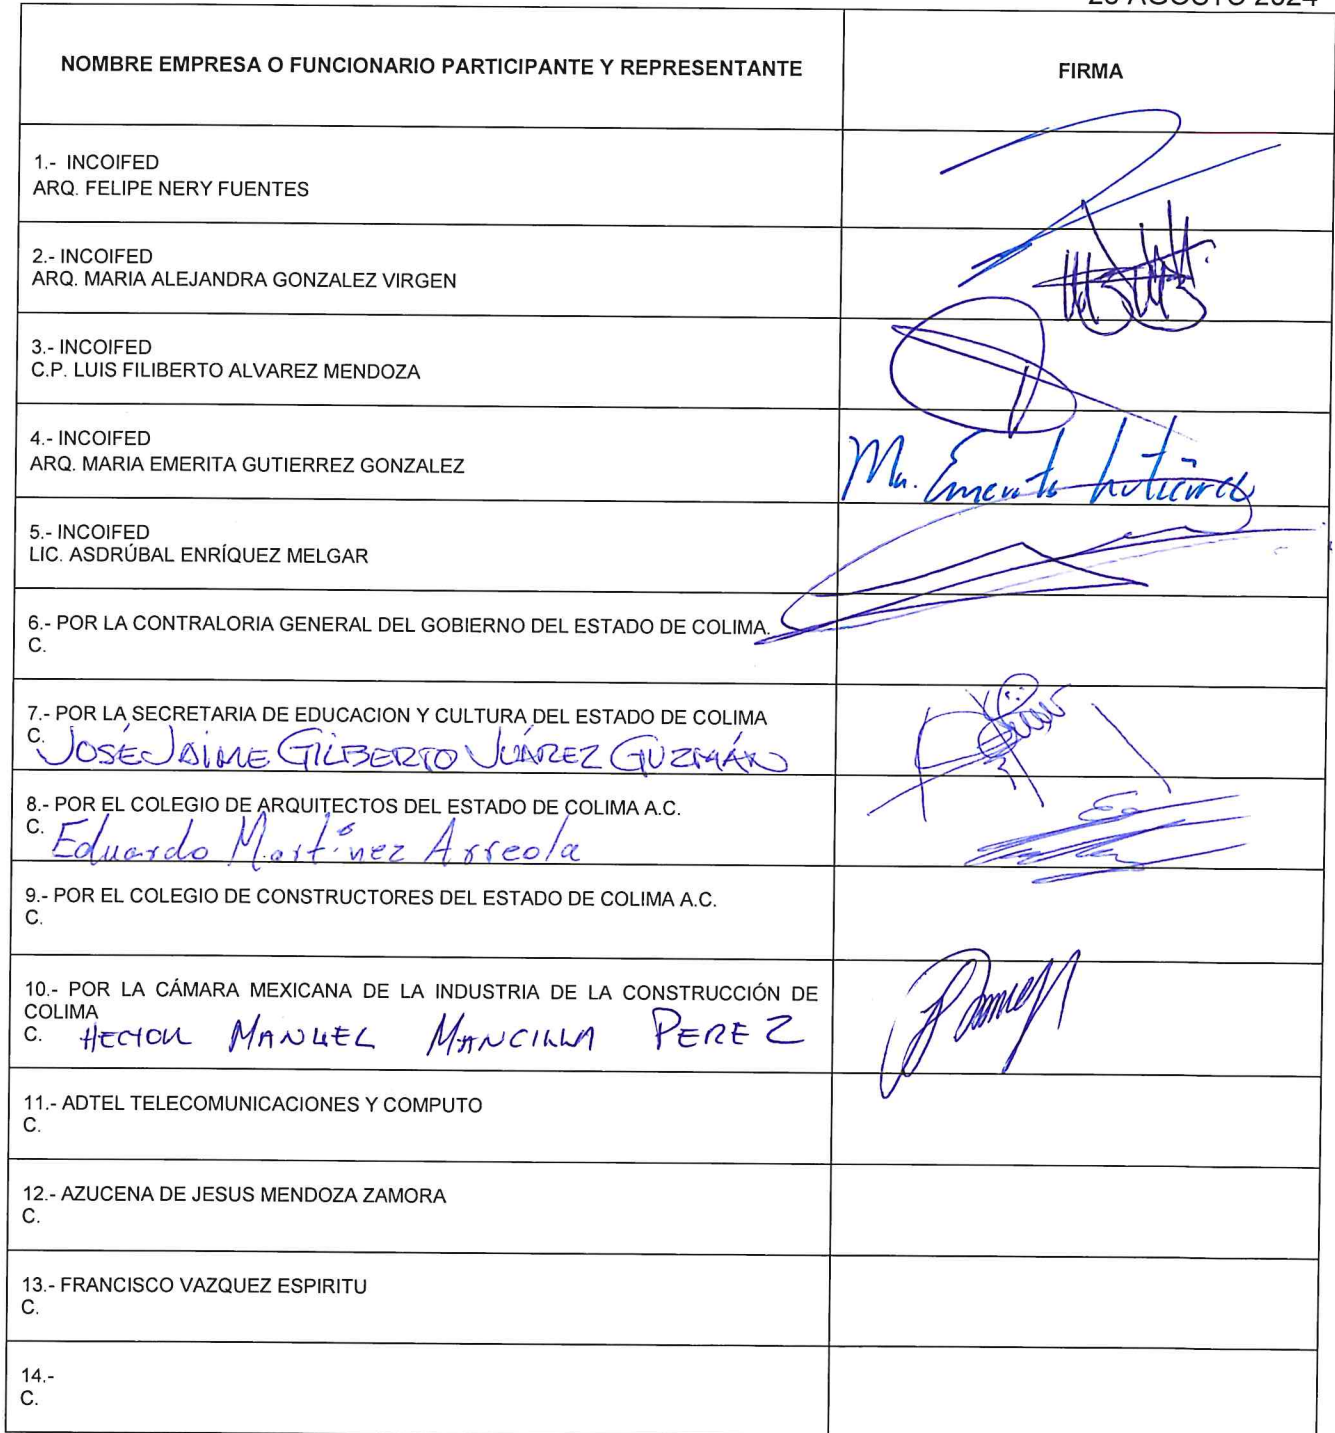 AGOSTO 2024
NOMBRE EMPRESA O FUNCIONARIO PARTICIPANTE Y REPRESENTANTE
FIRMA
1.- INCOIFED
ARQ. FELIPE NERY FUENTES
2.- INCOIFED
ARQ. MARIA ALEJANDRA GONZALEZ VIRGEN
3.- INCOIFED
C.P. LUIS FILIBERTO ALVAREZ MENDOZA
4.- INCOIFED
ARQ. MARIA EMERITA GUTIERREZ GONZALEZ
Ma. Emerita Gutiérrez
5.- INCOIFED
LIC. ASDRÚBAL ENRÍQUEZ MELGAR
6.- POR LA CONTRALORIA GENERAL DEL GOBIERNO DEL ESTADO DE COLIMA.
C.
7.- POR LA SECRETARIA DE EDUCACION Y CULTURA DEL ESTADO DE COLIMA
C. JOSÉ JAIME GILBERTO JUÁREZ GUZMÁN
8.- POR EL COLEGIO DE ARQUITECTOS DEL ESTADO DE COLIMA A.C.
C. Eduardo Martínez Arreola
9.- POR EL COLEGIO DE CONSTRUCTORES DEL ESTADO DE COLIMA A.C.
C.
10.- POR LA CÁMARA MEXICANA DE LA INDUSTRIA DE LA CONSTRUCCIÓN DE
COLIMA
C. HECTOR MANUEL MANCILLA PEREZ
11.- ADTEL TELECOMUNICACIONES Y COMPUTO
C.
12.- AZUCENA DE JESUS MENDOZA ZAMORA
C.
13.- FRANCISCO VAZQUEZ ESPIRITU
C.
14.-
C.